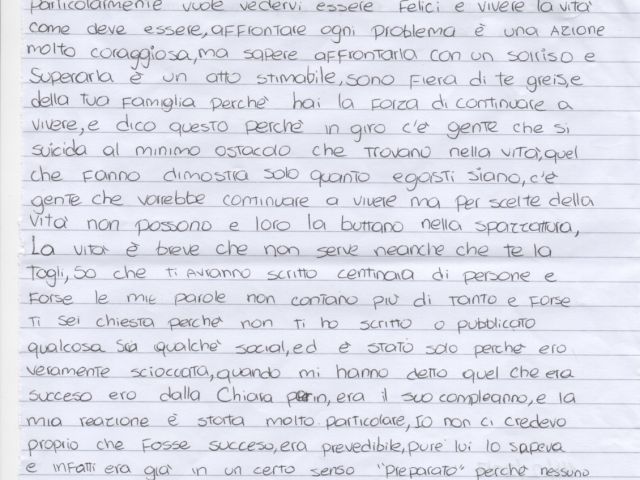 particolarmente vuole vedervi essere felici e vivere la vita
come deve essere, affrontare ogni problema è una azione
molto coraggiosa, ma sapere affrontarla con un sorriso e
superarla è un atto stimabile, sono fiera di te greis, e
della tua famiglia perchè hai la forza di continuare a
vivere, e dico questo perchè in giro c'è gente che si
suicida al minimo ostacolo che trovano nella vita, quel
che fanno dimostra solo quanto egoisti siano, c'è
gente che vorrebbe continuare a vivere ma per scelte della
vita non possono e loro la buttano nella spazzatura,
La vita è breve che non serve neanche che te la
togli, so che ti avranno scritto centinaia di persone e
forse le mie parole non contano più di tanto e forse
ti sei chiesta perchè non ti ho scritto o pubblicato
qualcosa su qualche social, ed è stato solo perchè ero
veramente scioccata, quando mi hanno detto quel che era
succeso ero dalla Chiara perin, era il suo compleanno, e la
mia reazione è stata molto particolare, Io non ci credevo
proprio che fosse succeso, era prevedibile, pure lui lo sapeva
e infatti era già in un certo senso "preparato" perchè nessuno